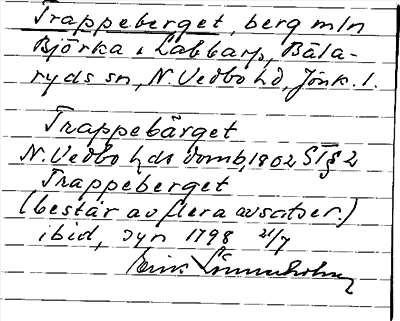 Trappeberget, berg mln
Björka o Labbarp, Bäla-
ryds sn, N. Vedbo hd, Jönk. l.
Trappebärget
N. Vedbo hds domb, 1802 ST § 2
Trappeberget
(består av flera avsatser.)
ibid, syn 1798 21/7
Erik